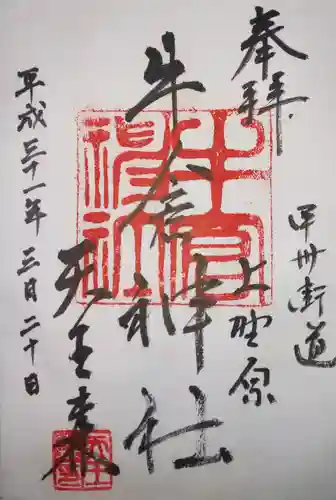 奉拝
甲州街道
上野原
牛倉神社
天王森
平成三十一年三月二十日